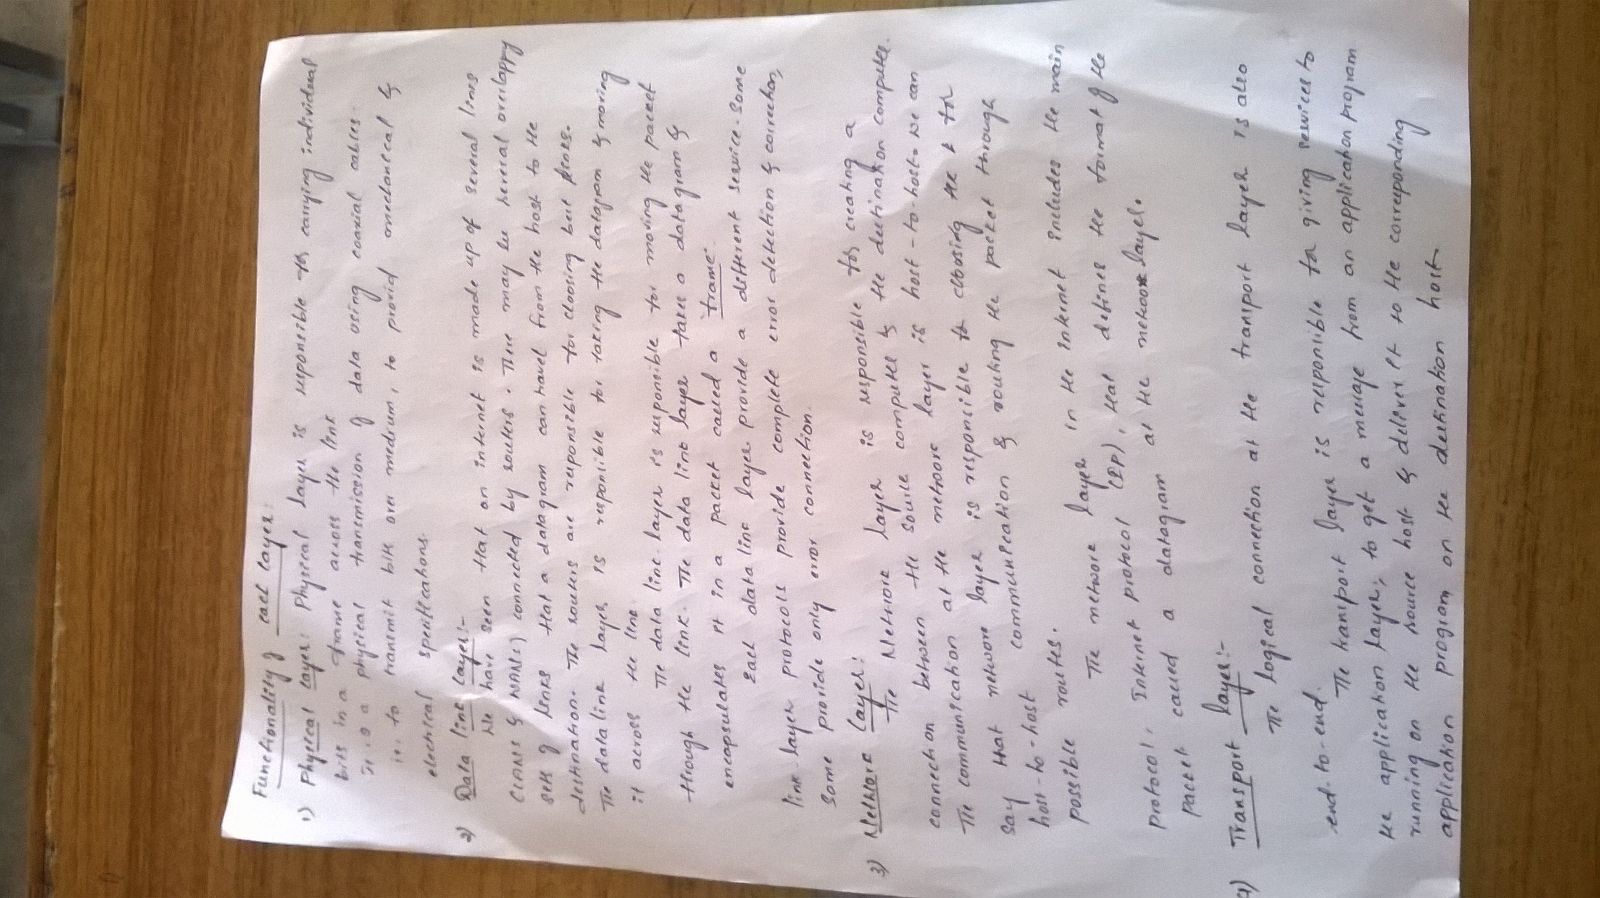 Functionality of each layer:
1) Physical layer: Physical layer is responsible for carrying individual
bits in a frame across the link
It is a physical transmission of data using coaxial cables.
i.e. to transmit bits over medium, to provid mechanical &
electrical specifications.
2) Data link layer:-
We have seen that an internet is made up of several links
(LANs & WANs) connected by routers. There may be several overlappy
sets of links that a datagram can travel from the host to the
destination. The routers are responsible for choosing best links.
The data link layer is responsible for taking the datagram & moving
it across the link
The data link layer is responsible for moving the packet
through the link. The data link layer takes a datagram &
encapsulates it in a packet called a "frame".
Each data link layer provide a different service. Some
link-layer protocols provide complete error detection & correction,
some provide only error connection.
3) Network layer:
The Network layer is responsible for creating a
connection between the source computer & the destination computer.
The communication at the network layer is host-to-host. we can
say that network layer is responsible for choosing the for
host-to-host communication & routing the packet through
possible routes.
The network layer in the internet includes the main
protocol, Internet protocol (IP), that defines the format of the
packet called a datagram at the network layer.
4) Transport layer:-
The logical connection at the transport layer is also
end-to-end.
The transport layer is responsible for giving services to
the application layer; to get a message from an application program
running on the source host & deliver it to the corresponding
application program on the destination host